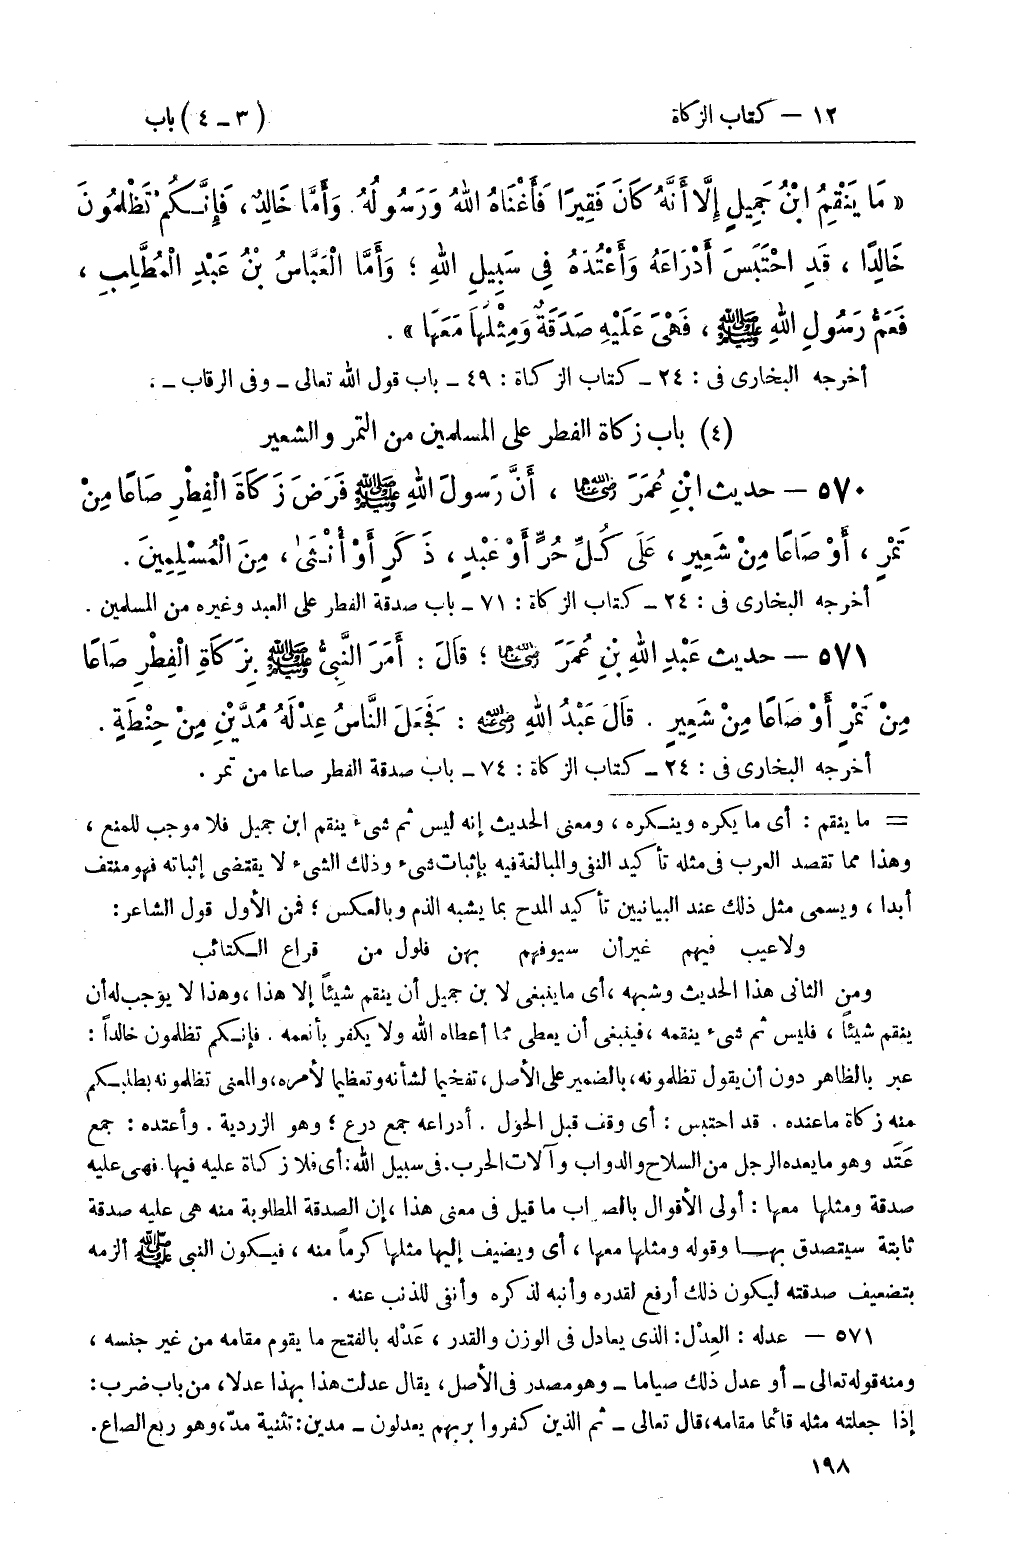 ١٢ — كتاب الزكاة (٣ ـ ٤) باب
« مَا يَنْقِمُ ابْنُ جَمِيلٍ إِلَّا أَنَّهُ كَانَ فَقِيرًا فَأَغْنَاهُ اللهُ وَرَسُولُهُ. وَأَمَّا خَالِدٌ، فَإِنَّكُمْ تَظْلِمُونَ
خَالِدًا ، قَدِ احْتَبَسَ أَدْرَاعَهُ وَأَعْتُدَهُ فِي سَبِيلِ اللهِ ؛ وَأَمَّا الْعَبَّاسُ بْنُ عَبْدِ الْمُطَّلِبِ ،
فَعَمُّ رَسُولِ اللهِ ﷺ ، فَهْىَ عَلَيْهِ صَدَقَةٌ وَمِثْلُهَا مَعَهَا » .
أخرجه البخارى فى : ٢٤ ـ كتاب الزكاة : ٤٩ ـ باب قول الله تعالى ـ وفى الرقاب ـ .
(٤) باب زكاة الفطر على المسلمين من التمر والشعير
٥٧٠ — حديث ابْنِ عُمَرَ رضي الله عنهما ، أَنَّ رَسُولَ اللهِ ﷺ فَرَضَ زَكَاةَ الْفِطْرِ صَاعًا مِنْ
تَمْرٍ ، أَوْ صَاعًا مِنْ شَعِيرٍ ، عَلَى كُلِّ حُرٍّ أَوْ عَبْدٍ ، ذَكَرٍ أَوْ أُنْثَىٰ ، مِنَ الْمُسْلِمِينَ .
أخرجه البخارى فى : ٢٤ ـ كتاب الزكاة : ٧١ ـ باب صدقة الفطر على العبد وغيره من المسلمين .
٥٧١ — حديث عَبْدِ اللهِ بْنِ عُمَرَ رضي الله عنهما ؛ قَالَ : أَمَرَ النَّبِىُّ ﷺ بِزَكَاةِ الْفِطْرِ صَاعًا
مِنْ تَمْرٍ أَوْ صَاعًا مِنْ شَعِيرٍ . قَالَ عَبْدُ اللهِ رضي الله عنه : فَجَعَلَ النَّاسُ عِدْلَهُ مُدَّيْنِ مِنْ حِنْطَةٍ .
أخرجه البخارى فى : ٢٤ ـ كتاب الزكاة : ٧٤ ـ باب صدقة الفطر صاعا من تمر .
= ما ينقم : أى ما يكره وينكره ، ومعنى الحديث إنه ليس ثم شىء ينقم ابن جميل فلا موجب للمنع ،
وهذا مما تقصد العرب فى مثله تأكيد النفى والمبالغة فيه بإثبات شىء وذلك الشىء لا يقتضى إثباته فهو منتف
أبدا ، ويسمى مثل ذلك عند البيانيين تأكيد المدح بما يشبه الذم وبالعكس ؛ فمن الأول قول الشاعر :
ولاعيب فيهم غير أن سيوفهم بهن فلول من قراع الكتائب
ومن الثانى هذا الحديث وشبهه ، أى ماينبغى لا بن جميل أن ينقم شيئاً إلا هذا ، وهذا لا يوجب له أن
ينقم شيئاً ، فليس ثم شىء ينقمه ، فينبغى أن يعطى مما أعطاه الله ولا يكفر بأنعمه . فإنكم تظلمون خالداً :
عبر بالظاهر دون أن يقول تظلمونه، بالضمير على الأصل، تفخيما لشأنه وتعظيما لأمره، والمعنى تظلمونه بطلبكم
منه زكاة ماعنده . قد احتبس : أى وقف قبل الحول . أدراعه جمع درع ؛ وهو الزردية . وأعتده : جمع
عَتَد وهو مايعده الرجل من السلاح والدواب وآلات الحرب. فى سبيل الله : أى فلا زكاة عليه فيها. فهى عليه
صدقة ومثلها معها : أولى الأقوال بالصواب ما قيل فى معنى هذا ، إن الصدقة المطلوبة منه هى عليه صدقة
ثابتة سيتصدق بها وقوله ومثلها معها ، أى ويضيف إليها مثلها كرماً منه ، فيكون النبى ﷺ ألزمه
بتضعيف صدقته ليكون ذلك أرفع لقدره وأنبه لذكره وأنفى للذنب عنه .
٥٧١ — عدله : العِدْل: الذى يعادل فى الوزن والقدر ، عَدْله بالفتح ما يقوم مقامه من غير جنسه ،
ومنه قوله تعالى ـ أو عدل ذلك صياما ـ وهو مصدر فى الأصل، يقال عدلت هذا بهذا عدلا، من باب ضرب :
إذا جعلته مثله قائما مقامه، قال تعالى ـ ثم الذين كفروا بربهم يعدلون ـ مدين : تثنية مدّ، وهو ربع الصاع.
١٩٨